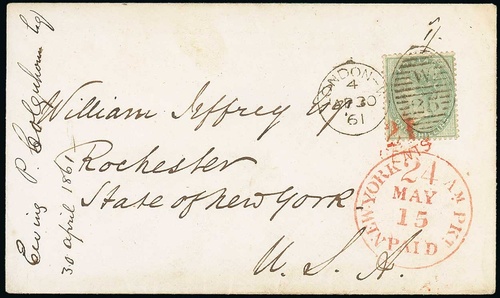 William Jeffrey Esq
Rochester
State of New York
U. S. A.
P. Colquhoun Esq
30 April 1861
LONDON-W
4
AP 30
61
W
25
CENTS
NEW YORK AM PKT
24
MAY
15
PAID